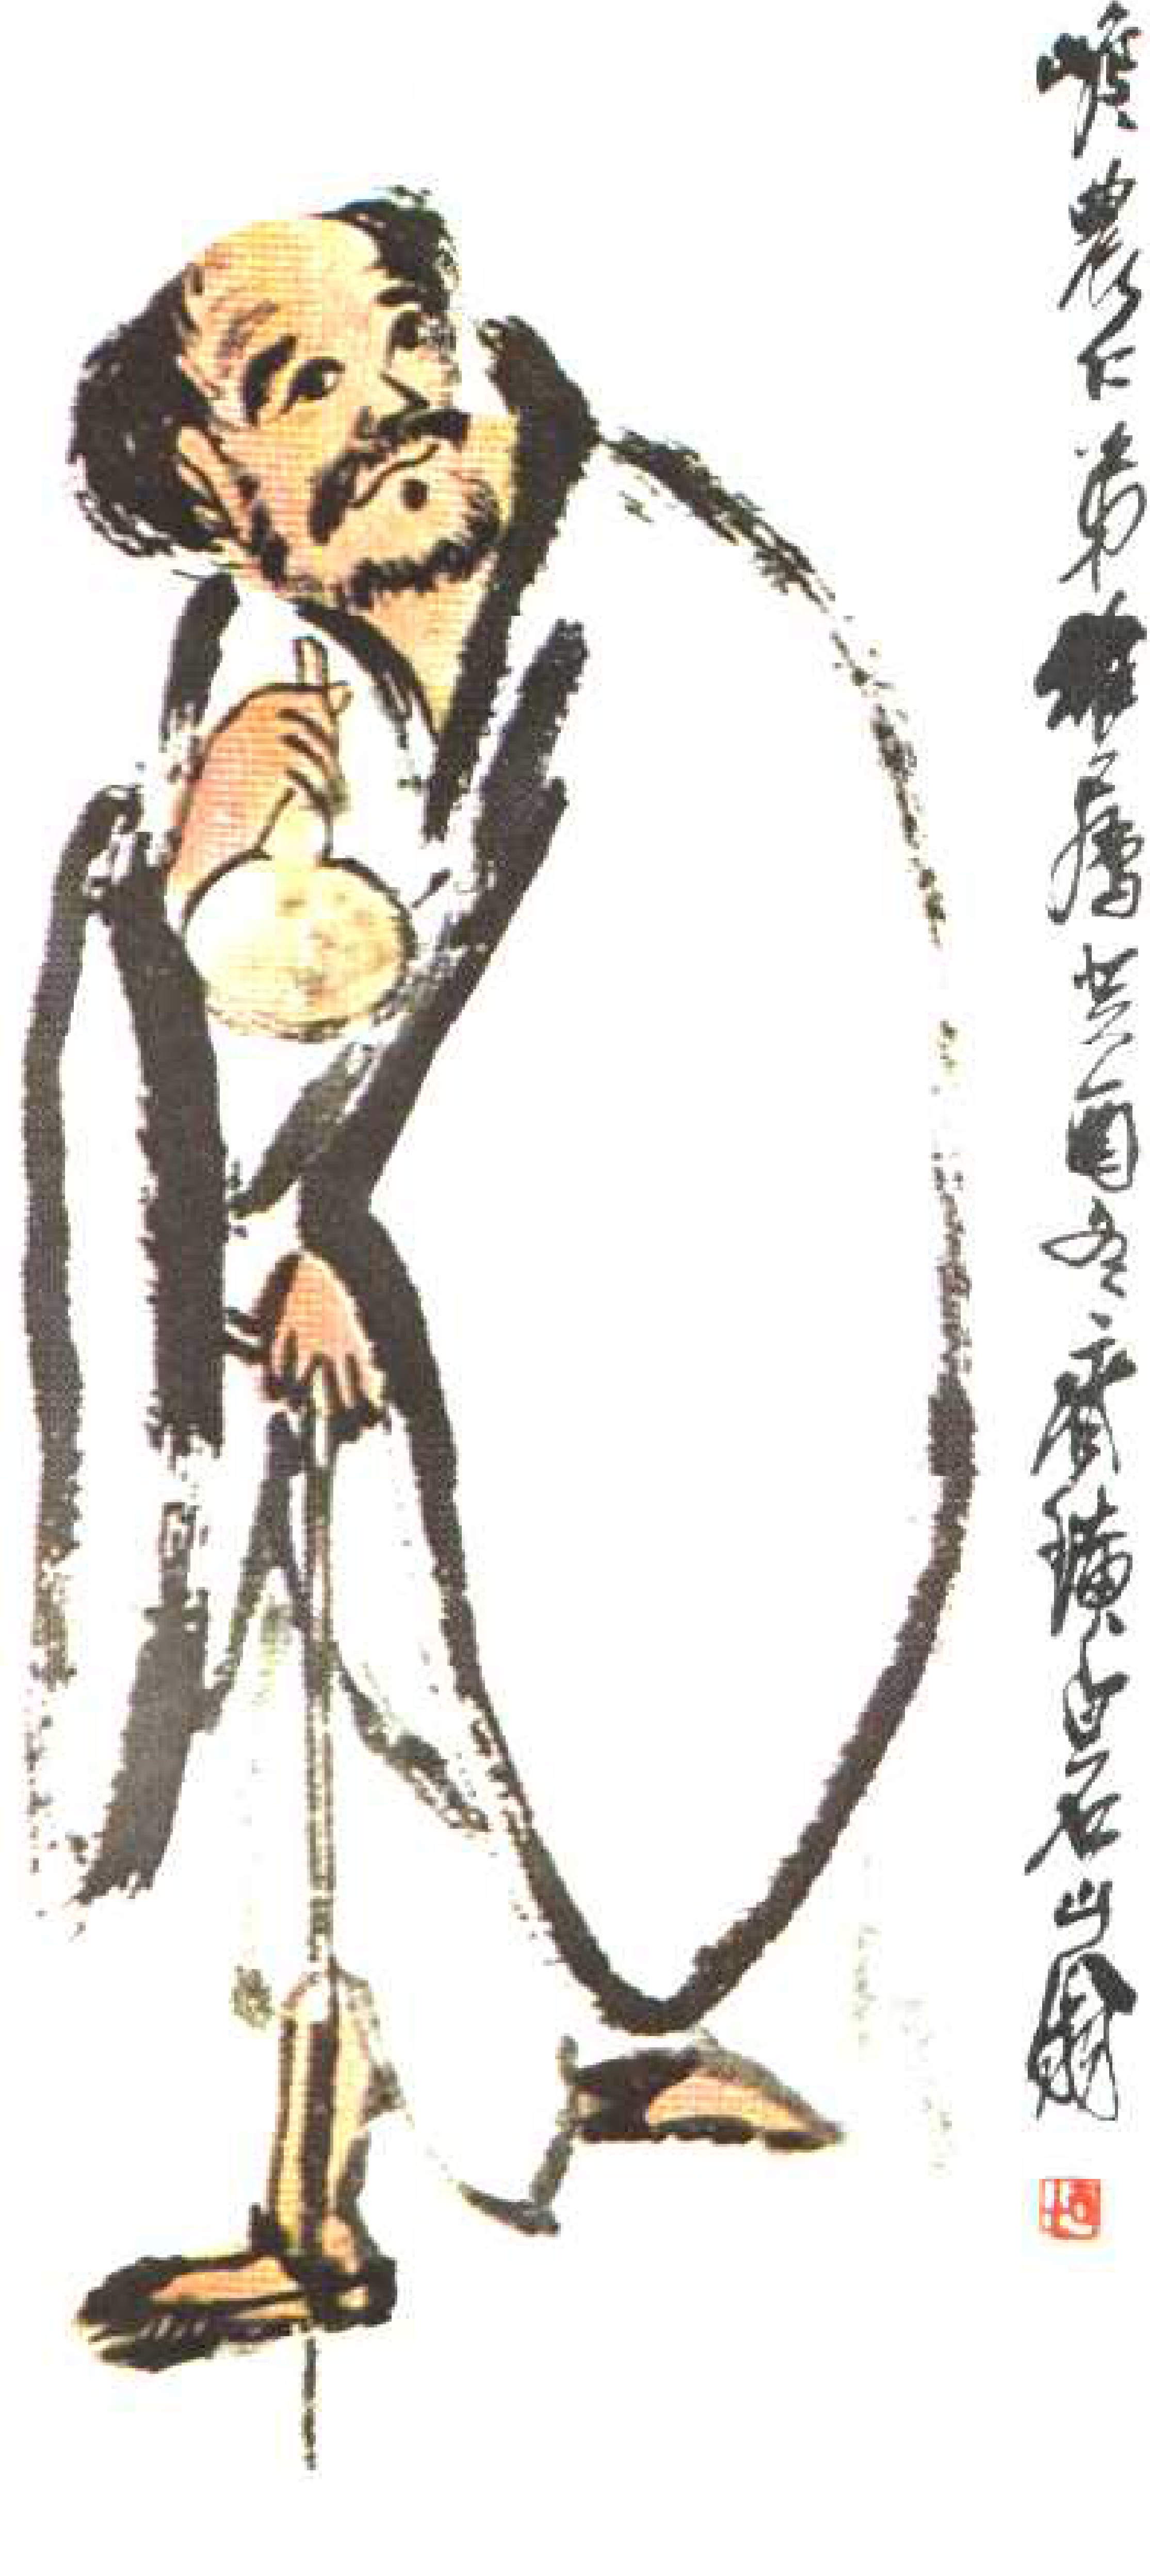 農仁弟雅屬其有至齊璜白石山翁